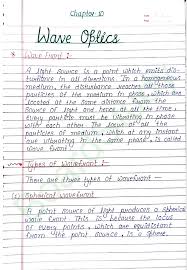 Chapter 10
Wave Optics
* Wave Front :-
A light source is a point which emits dis-
turbance in all directions. In a homogeneous
medium, the disturbance reaches all those
particles of the medium in phase, which are
located at the same distance from the
source of light and hence at all the time,
every particles must be vibrating in phase
with each other. The locus of all the
particles of medium, which at any instant
are vibrating in the same phase, is called
wave front.
Types of Wavefront :-
There are three types of wavefront —
(1) Spherical wavefront
A point source of light produces a spherical
wave front. This is because the locus
of every points, which are equidistant
from the point source, is a sphere.